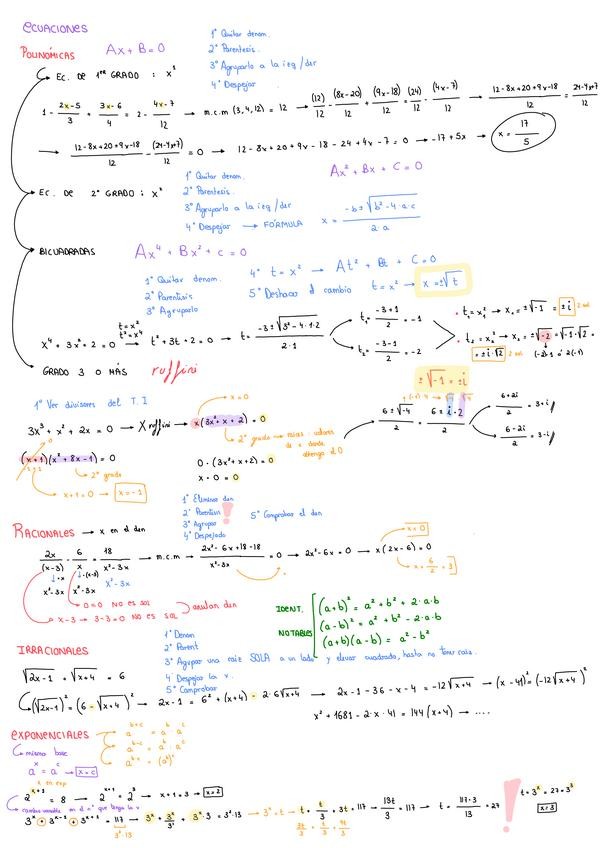 ECUACIONES
POLINÓMICAS
Ax + B = 0
1º Quitar denom.
2º Parentesis.
3º Agruparlo a la izq/der
4º Despejar
EC. DE 1ER GRADO : x¹
1 - (2x-5)/3 + (3x-6)/4 = 2 - (4x-7)/12 → m.c.m (3,4,12) = 12 → (12)/12 - (8x-20)/12 + (9x-18)/12 = (24)/12 - (4x-7)/12 → (12-8x+20+9x-18)/12 = (24-4x+7)/12
→ (12-8x+20+9x-18)/12 - (24-4x+7)/12 = 0 → 12-8x+20+9x-18-24+4x-7 = 0 → -17+5x → x = 17/5
EC. DE 2º GRADO : x²
1º Quitar denom.
2º Parentesis.
3º Agruparlo a la izq/der
4º Despejar → FÓRMULA x = (-b ± √(b²-4·a·c))/(2·a)
Ax² + Bx + C = 0
BICUADRADAS
Ax⁴ + Bx² + C = 0
1º Quitar denom.
2º Parentisis
3º Agruparlo
4º t = x² → At² + Bt + C = 0
5º Deshago el cambio t = x² → x = ±√t
t = x²
t² = x⁴
x⁴ + 3x² + 2 = 0 → t² + 3t + 2 = 0 → t = (-3 ± √(3²-4·1·2))/(2·1)
t₁ = (-3+1)/2 = -1
t₂ = (-3-1)/2 = -2
t₁ = x₁² → x₁ = ±√-1 = ±i 2 sol
t₂ = x₂² → x₂ = ±√-2 = √-1·√2 =
= ±i·√2 2 sol
(-2)·1 ó 2(-1)
GRADO 3 O MÁS ruffini
±√-1 = ±i
1º Ver divisores del T.I
3x³ + x² + 2x = 0 → X ruffini → x(3x² + x + 2) = 0
x = 0
2º grado → raices - valores de x donde obtengo el 0
(x+1)(x² + 8x - 1) = 0
2º grado
x+1 = 0 → x = -1
0·(3x²+x+2) = 0
x·0 = 0
(6 ± √-4)/2 = (6 ± i·2)/2
(6+2i)/2 = 3+i
(6-2i)/2 = 3-i
1º Eliminar den
2º Parentisis
3º Agrupar
4º Despejado
5º Comprobar el den
RACIONALES → x en el den
2x/(x-3) - 6/x = 18/(x²-3x) → m.c.m → (2x²-6x+18-18)/(x²-3x) = 0 → 2x²-6x = 0 → x(2x-6) = 0
x = 0
x = 6/2 = 3
↓·x ↓·(x-3)
x²-3x x²-3x x²-3x
0 = 0 NO ES SOL
x-3 → 3-3=0 NO ES SOL
anulan den
IDENT. NOTABLES
(a+b)² = a² + b² + 2·a·b
(a-b)² = a² + b² - 2·a·b
(a+b)(a-b) = a² - b²
IRRACIONALES
1º Denom
2º Parent
3º Agrupar una raiz SOLA a un lado y elevar cuadrado, hasta no tener raiz.
4º Despejar la x.
5º Comprobar
√(2x-1) + √(x+4) = 6
(√(2x-1))² = (6 - √(x+4))² → 2x-1 = 6² + (x+4) - 2·6√(x+4) → 2x-1-36-x-4 = -12√(x+4) → (x-41)² = (-12√(x+4))²
x² + 1681 - 2·x·41 = 144(x+4) → ....
EXPONENCIALES
misma base
aˣ = aᶜ → x = c
a^(b+c) = a^b · a^c
x en exp
2^(x+1) = 8 → 2^(x+1) = 2³ → x+1 = 3 → x=2
cambio variable en el nº que tenga la x
3ˣ + 3^(x-1) + 3^(x+1) = 117 → 3ˣ + 3ˣ/3 + 3ˣ·3 = 3²·13 → 3ˣ = t → t + t/3 + 3t = 117 → 13t/3 = 117 → t = (117·3)/13 = 27
3²·13
3t/3 + t/3 + 9t/3
t = 3ˣ = 27 = 3³
x = 3